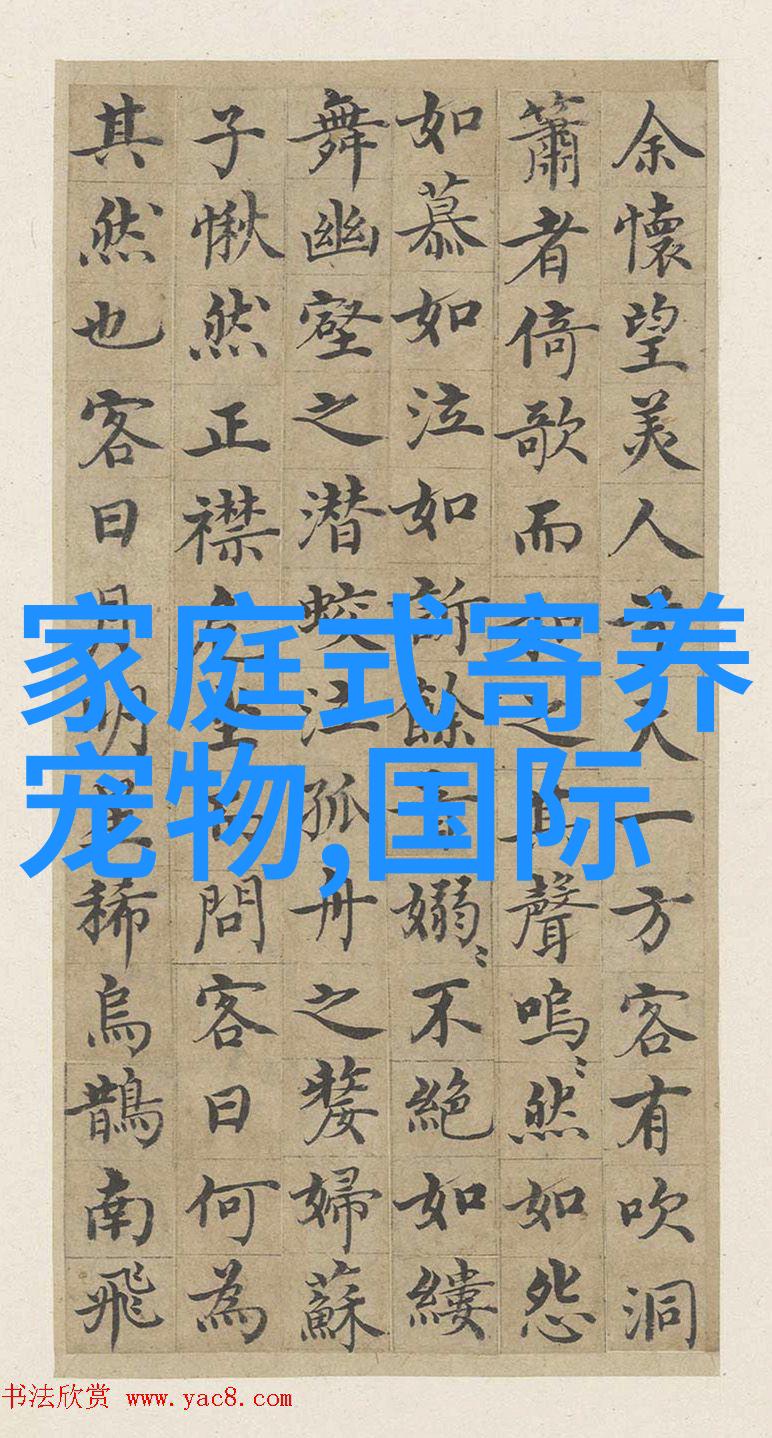 余懷望美人兮天一方客有吹洞
簫者倚歌而和之其聲嗚〻然如怨
如慕如泣如訴餘音嫋〻不絕如縷
舞幽壑之潜蛟泣孤舟之嫠婦蘇
子愀然正襟危坐而問客曰何為
其然也客曰月明星稀烏鵲南飛
家庭式寄养
宠物,国际
书法欣赏 www.yac8.com